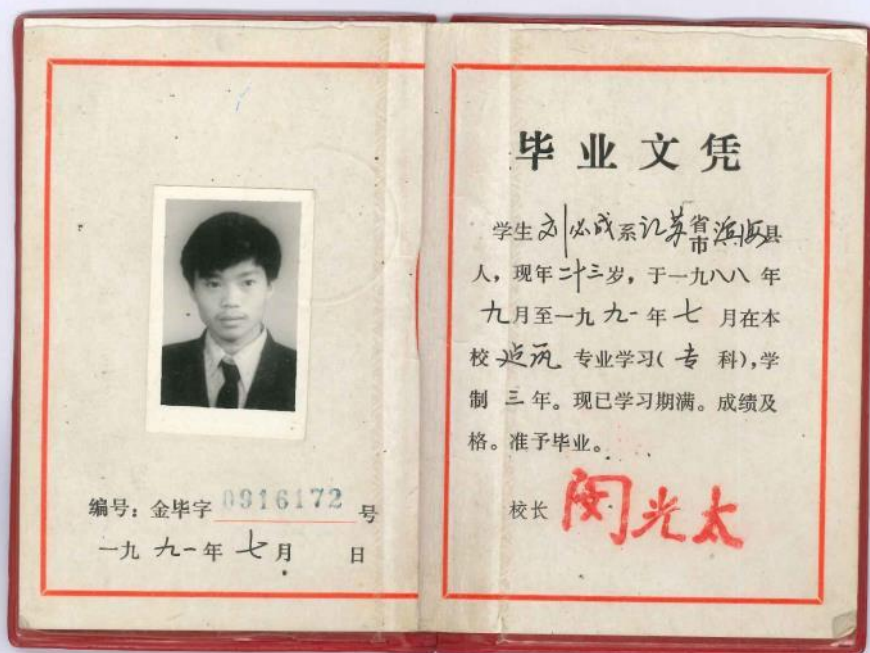 编号：金毕字 0916172 号
一九九一年七月 日
毕业文凭
学生刘必成系江苏省市滨海县
人，现年二十三岁，于一九八八年
九月至一九九一年七月在本
校建筑专业学习(专科)，学
制三年。现已学习期满。成绩及
格。准予毕业。
校长 闵光太